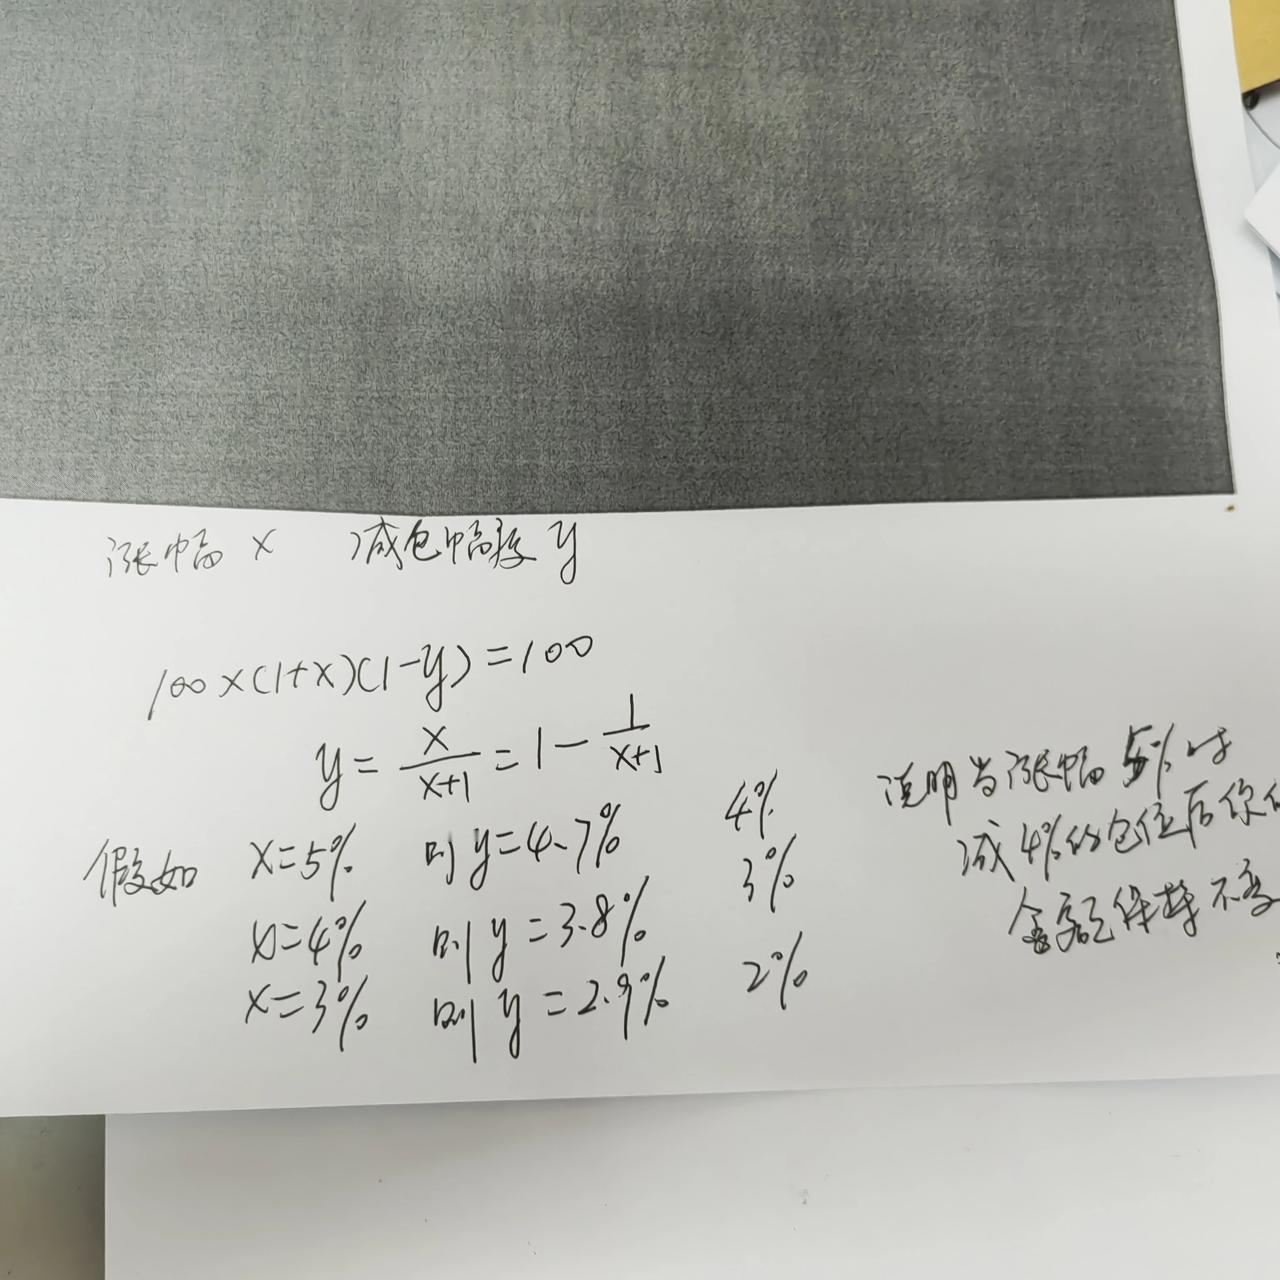 涨幅 x 减仓幅度 y
100×(1+x)(1-y)=100
y = x/(x+1) = 1 - 1/(x+1)
假如 x=5% 则 y=4.7% 4%
x=4% 则 y=3.8% 3%
x=3% 则 y=2.9% 2%
说明当涨幅 5%时
减4%的仓位后你的
金额保持不变